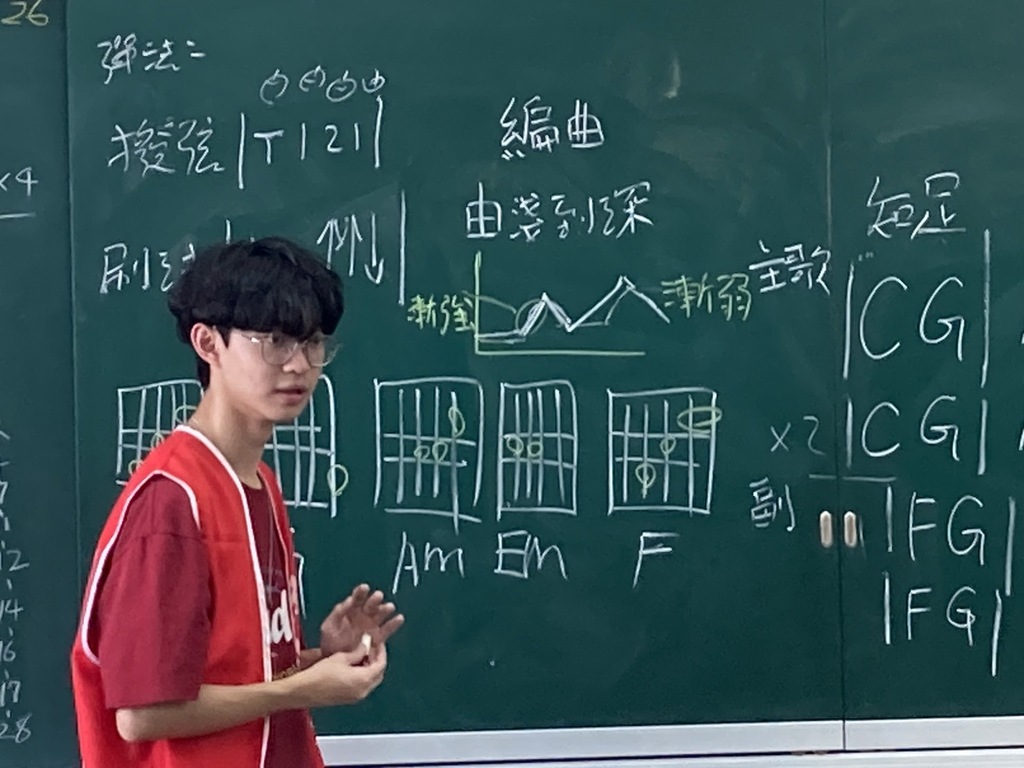 26
彈法二
撥弦 | T 1 2 1 |
刷
x4
編曲
由淺到深
漸強
漸弱
主歌
知足
| C G |
x2 | C G |
副 | F G |
| F G |
Am Em F
12
14
16
17
28